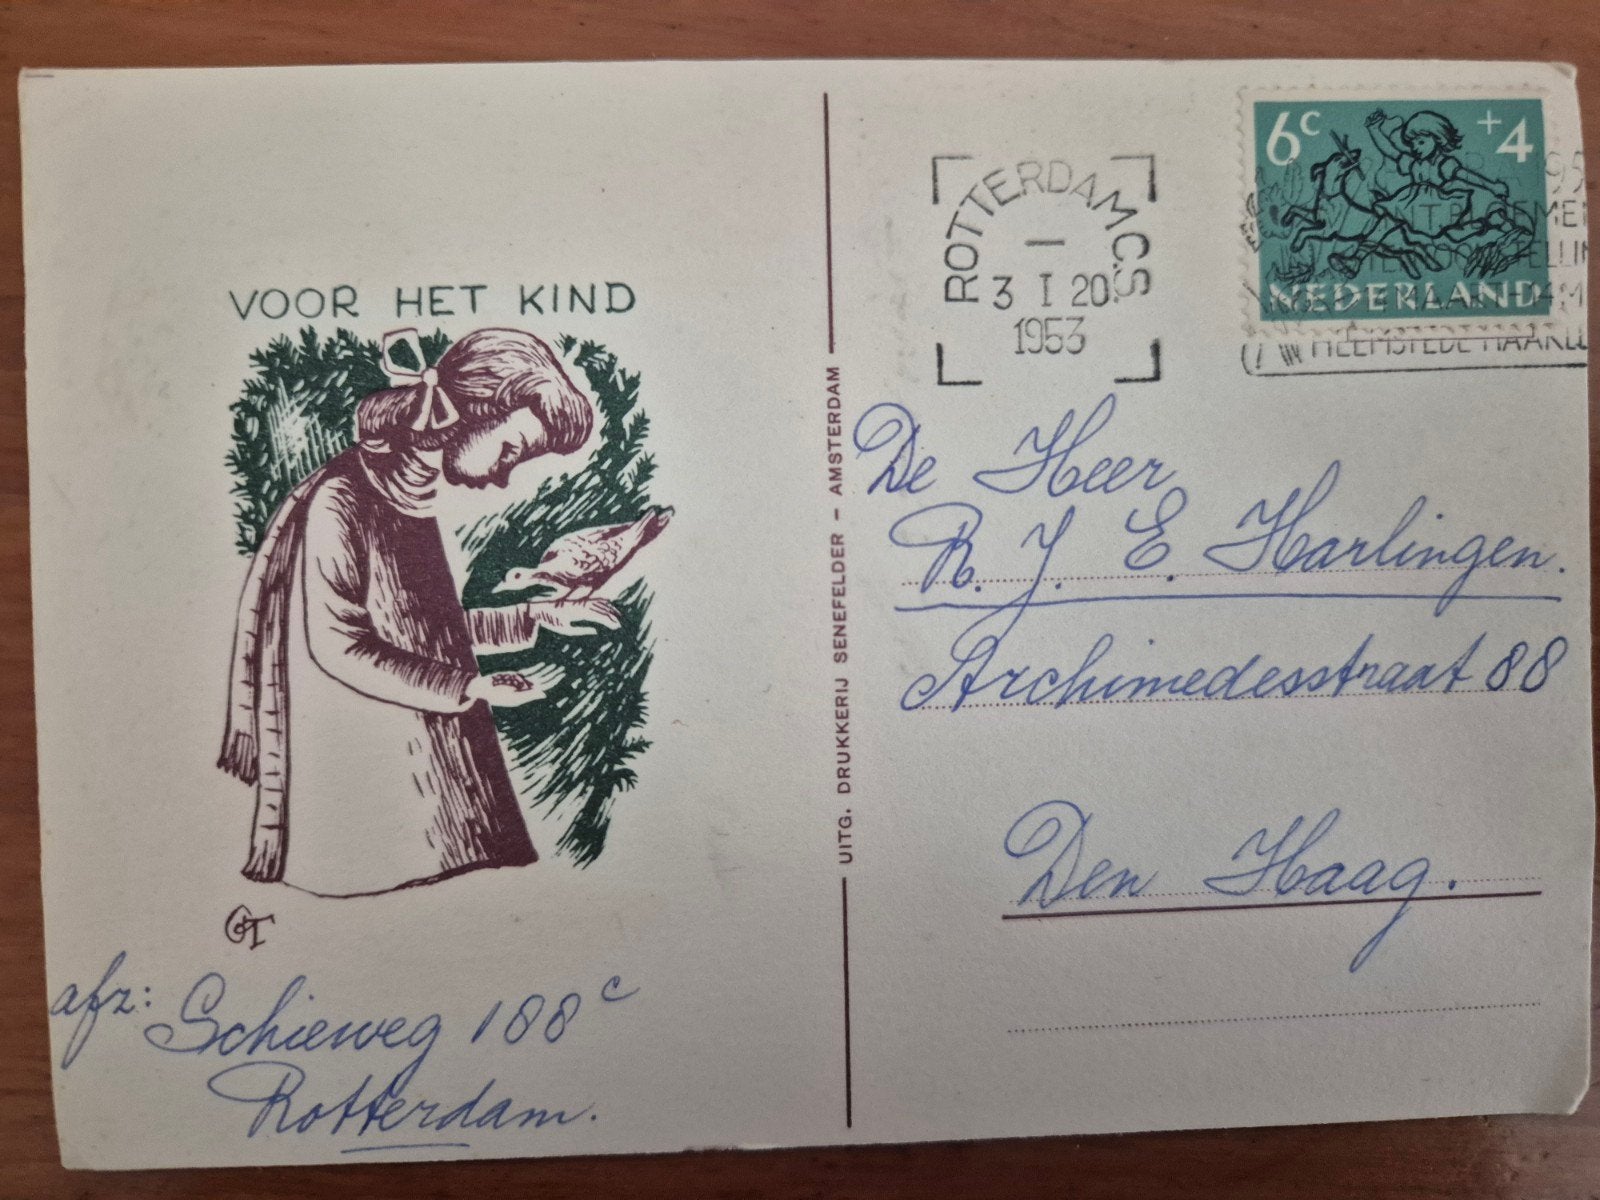 VOOR HET KIND
GT
afz: Schieweg 188c
Rotterdam.
UITG. DRUKKERIJ SENEFELDER – AMSTERDAM
ROTTERDAM C.S.
3 I 20
1953
6c +4
NEDERLAND
HEEMSTEDE HAARLE
De Heer
R. J. E. Harlingen.
Archimedesstraat 88
Den Haag.